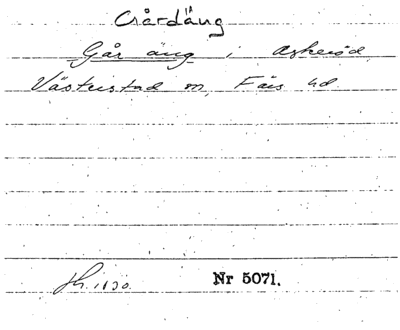 Gårdäng
Går äng i Askeröd
Västerstad m, Färs hd.
Nr 5071.